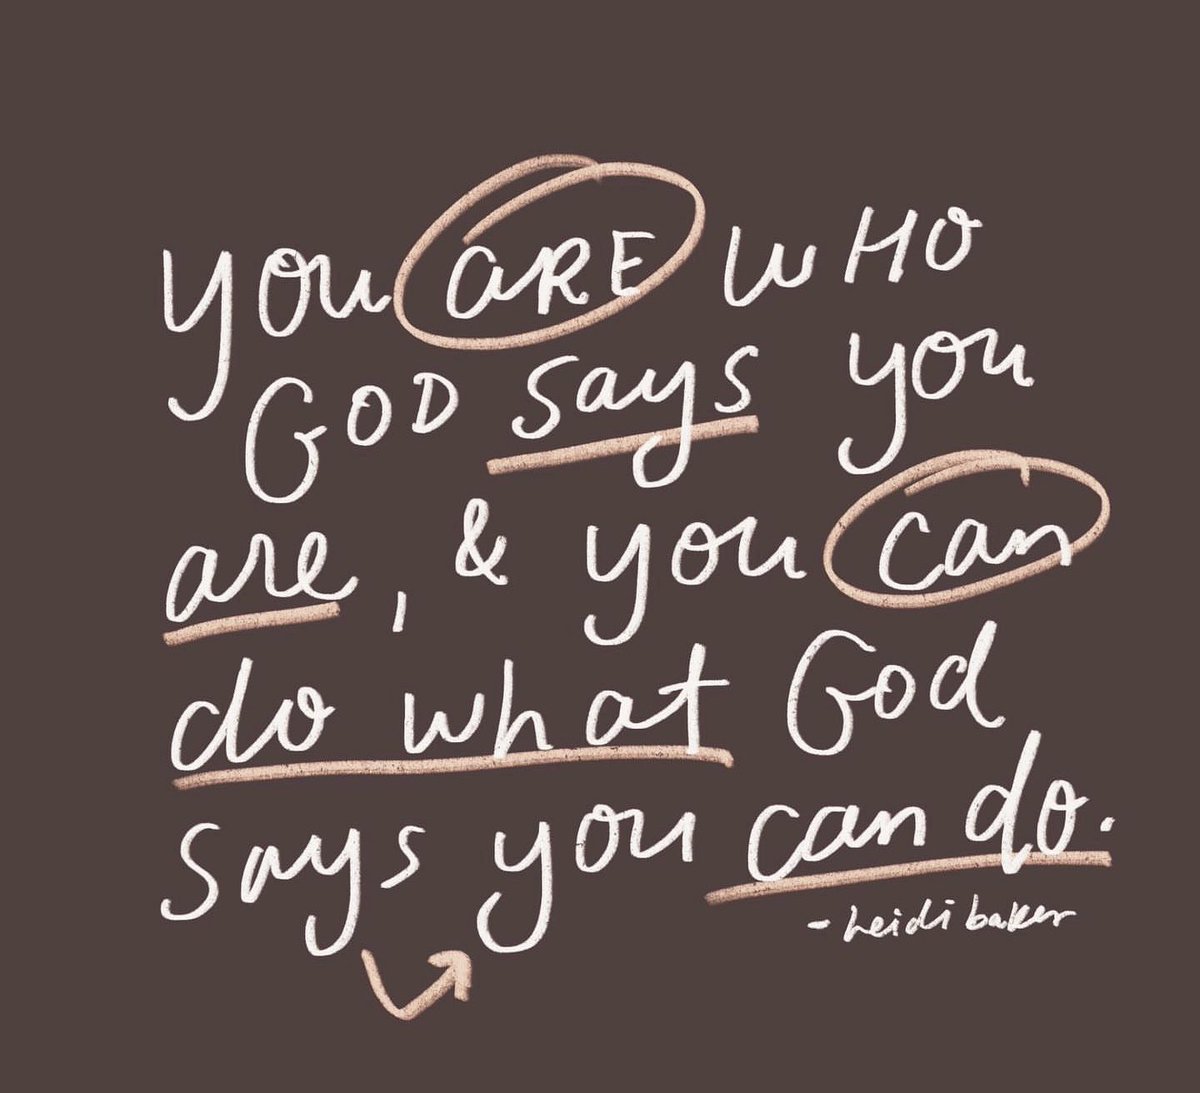 you aRE WHO
GOD says you
are, & you can
do what God
says you can do.
- heidi baker